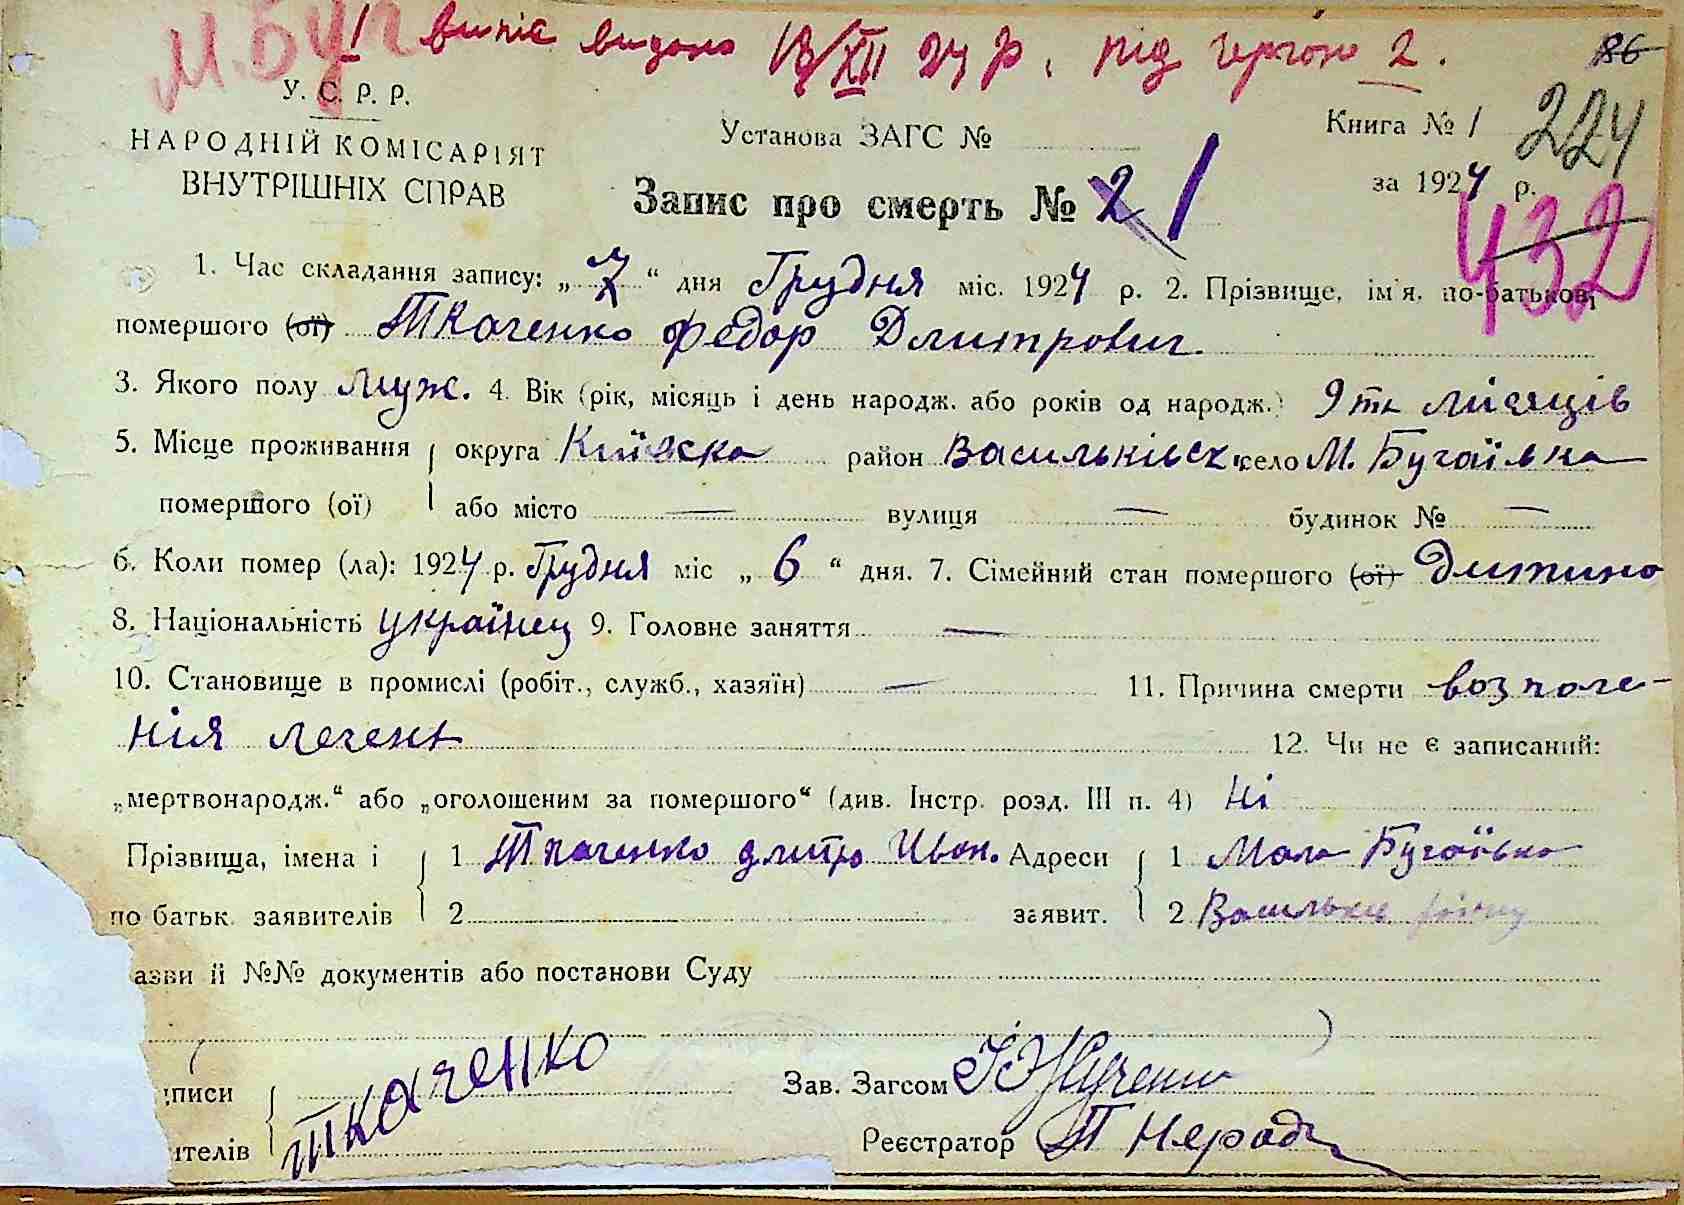 М. Буг
І випіс видано 18/XII 24 р. під чергою 2.
186
У. С. Р. Р.
НАРОДНІЙ КОМІСАРІЯТ
ВНУТРІШНІХ СПРАВ
Установа ЗАГС №
Книга № 1
224
Запис про смерть № 2 1
за 1924 р.
432
1. Час складання запису: „ 7 “ дня Грудня міс. 1924 р. 2. Прізвище, ім'я, по-батькові
помершого (ої) Ткаченко Федор Дмитрович.
3. Якого полу муж. 4. Вік (рік, місяць і день народж. або років од народж.) 9ть місяців
5. Місце проживання округа Київска район Васильківск. село М. Бугаївка
помершого (ої) або місто — вулиця — будинок № —
6. Коли помер (ла): 1924 р. Грудня міс „ 6 “ дня. 7. Сімейний стан помершого (ої) Дитина
8. Національність українец 9. Головне заняття —
10. Становище в промислі (робіт., служб., хазяїн) — 11. Причина смерти возпале-
ния легень
12. Чи не є записаний:
„мертвонародж.“ або „оголошеним за помершого“ (див. Інстр. розд. III п. 4) ні
Прізвища, імена і 1 Ткаченко дмитро Иван. Адреси 1 Мала Бугаївка
по батьк. заявителів 2 заявит. 2 Васильків району
азви й №№ документів або постанови Суду
писи Ткаченко Зав. Загсом
ителів Реєстратор